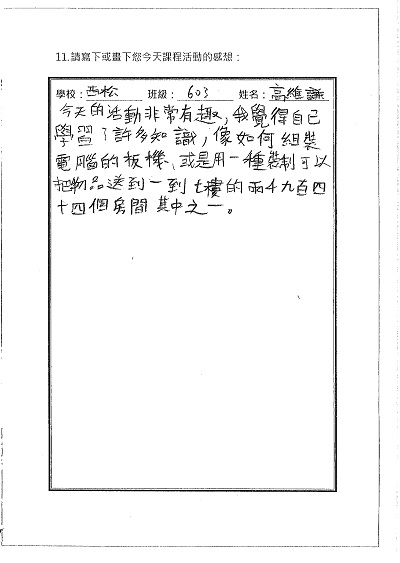 11.請寫下或畫下您今天課程活動的感想：
學校：西松 班級： 603 姓名：高維謙
今天的活動非常有趣,我覺得自己
學習了許多知識,像如何組裝
電腦的板機、或是用一種裝制可以
把物品送到一到七樓的兩千九百四
十四個房間其中之一。